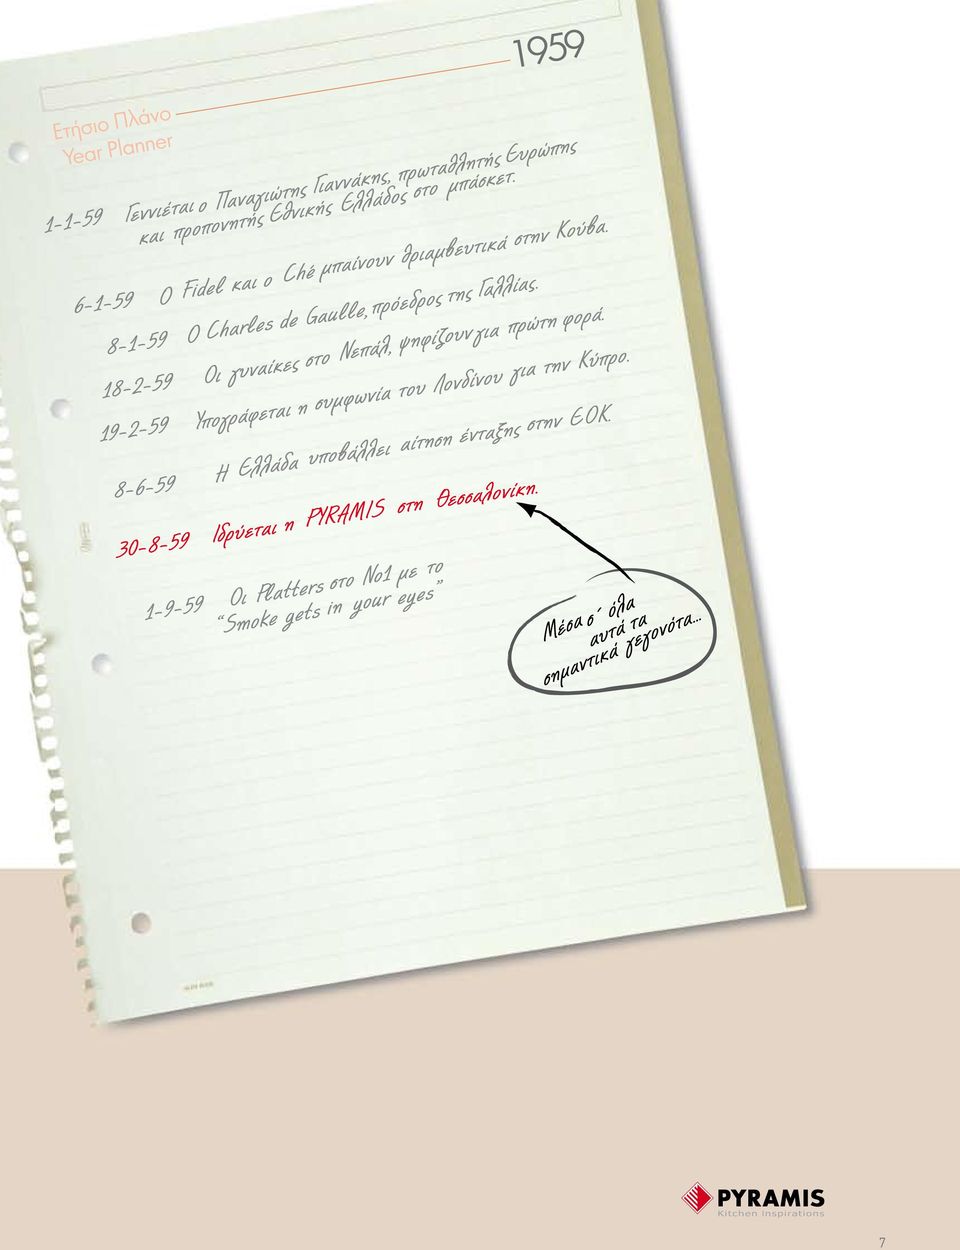 1959
Ετήσιο Πλάνο
Year Planner
1-1-59 Γεννιέται ο Παναγιώτης Γιαννάκης, πρωταθλητής Ευρώπης
και προπονητής Εθνικής Ελλάδος στο μπάσκετ.
6-1-59 Ο Fidel και ο Ché μπαίνουν θριαμβευτικά στην Κούβα.
8-1-59 Ο Charles de Gaulle, πρόεδρος της Γαλλίας.
18-2-59 Οι γυναίκες στο Νεπάλ, ψηφίζουν για πρώτη φορά.
19-2-59 Υπογράφεται η συμφωνία του Λονδίνου για την Κύπρο.
8-6-59 Η Ελλάδα υποβάλλει αίτηση ένταξης στην ΕΟΚ.
30-8-59 Ιδρύεται η PYRAMIS στη Θεσσαλονίκη.
1-9-59 Οι Platters στο Νο1 με το
“Smoke gets in your eyes”
Μέσα σ΄ όλα
αυτά τα
σημαντικά γεγονότα...
PYRAMIS
Kitchen Inspirations
7